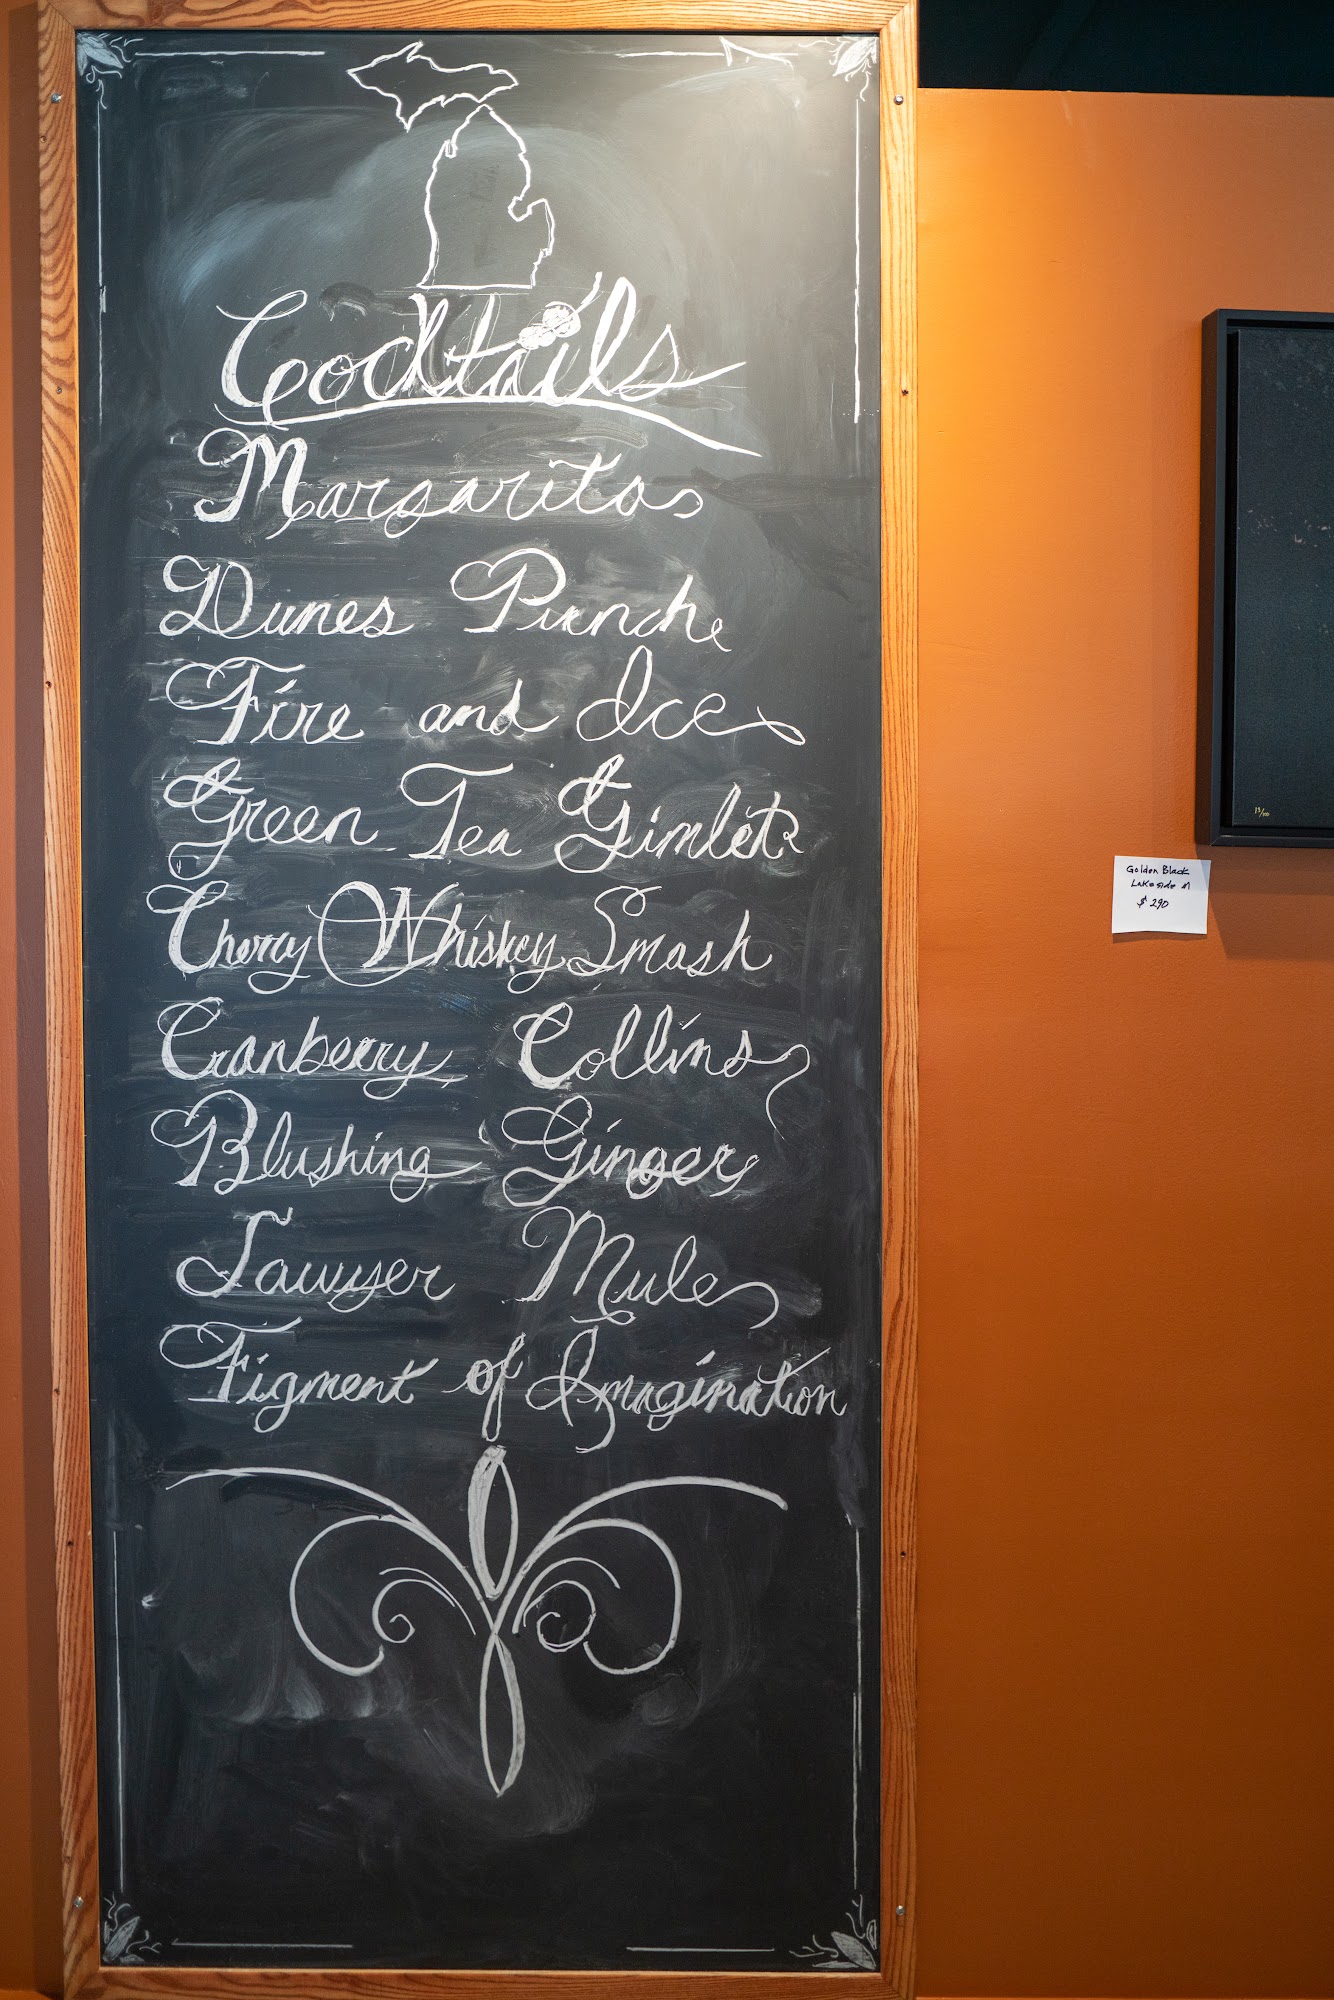 Cocktails
Margarita
Dunes Punch
Fire and Ice
Green Tea Gimlet
Cherry Whiskey Smash
Cranberry Collins
Blushing Ginger
Sawyer Mule
Figment of Imagination
Golden Black
Lakeside
$ 290